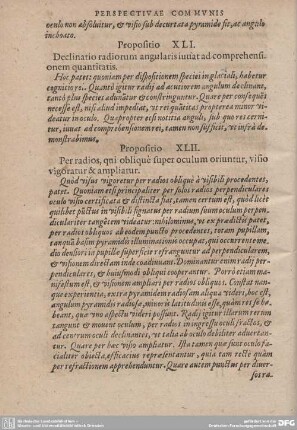 PERSPECTIVAE COMMVNIS
nento non absoluitur, & visio sub decurtata pyramide fit, ac angulo
inchoato.
Propositio XLI.
Declinatio radiorum angularis iuuat ad comprehensi-
onem quantitatis.
Hoc patet: quoniam per dispositionem speciei in glaciali, habetur
cognitio rei. Quanto igitur radij ad acutiorem angulum declinant,
tanto plus species adunatur & constringuntur. Quare per consequẽs
necesse est, nisi aliud impediat, ut rei quãtitas propterea minor
deatur in oculo. Quapropter etsi notitia anguli, sub quo res cerni-
tur, iuuat ad comprehensionem rei, tamen non sufficit, ut infrà de-
monstrabimus.
Propositio XLII.
Per radios, qui obliquè super oculum oriuntur, visio
vigoratur & ampliatur.
Quòd visus vigoretur per radios obliquè à visibili procedentes,
patet. Quoniam etsi principaliter per solos radios perpendiculares
oculo visio certificata & distincta fiat, tamen certum est, quòd licet
quilibet punctus in visibili signatus per radium suum oculum perpen-
diculariter
per radios obliquos ab eodem puncto procedentes, totam pupillam,
tanquã basim pyramidis illuminationis occupat, qui occurrente me-
dio densiori in pupillæ superficie refranguntur ad perpendicularem,
& visionem directam inde coadiuuant. Dominantur enim radij per-
pendiculares, & huiusmodi obliqui cooperantur. Porrò etiam ma-
nifestum est, & visionem ampliari per radios obliquos. Constat nan-
que experientia, extra pyramidem radiosam aliqua videri, hoc est,
angulum pyramidis radiosæ, minoris latitudinis esse, quàm res
beant, quæ uno aspectu videri possunt. Radij igitur illarum rerum
tangunt & mouent oculum, per radios in ingressu oculi fractos, &
ad centrum oculi declinantes, ut talia ab oculo debiliter aduertan-
tur. Quare per hæc visio ampliatur. Ista tamen quæ sunt oculo faci-
aliter obiecta, efficacius repræsentantur, quia tam rectè quàm
per refractionem apprehenduntur. Quare autem punctus per diuer-
sos ra-